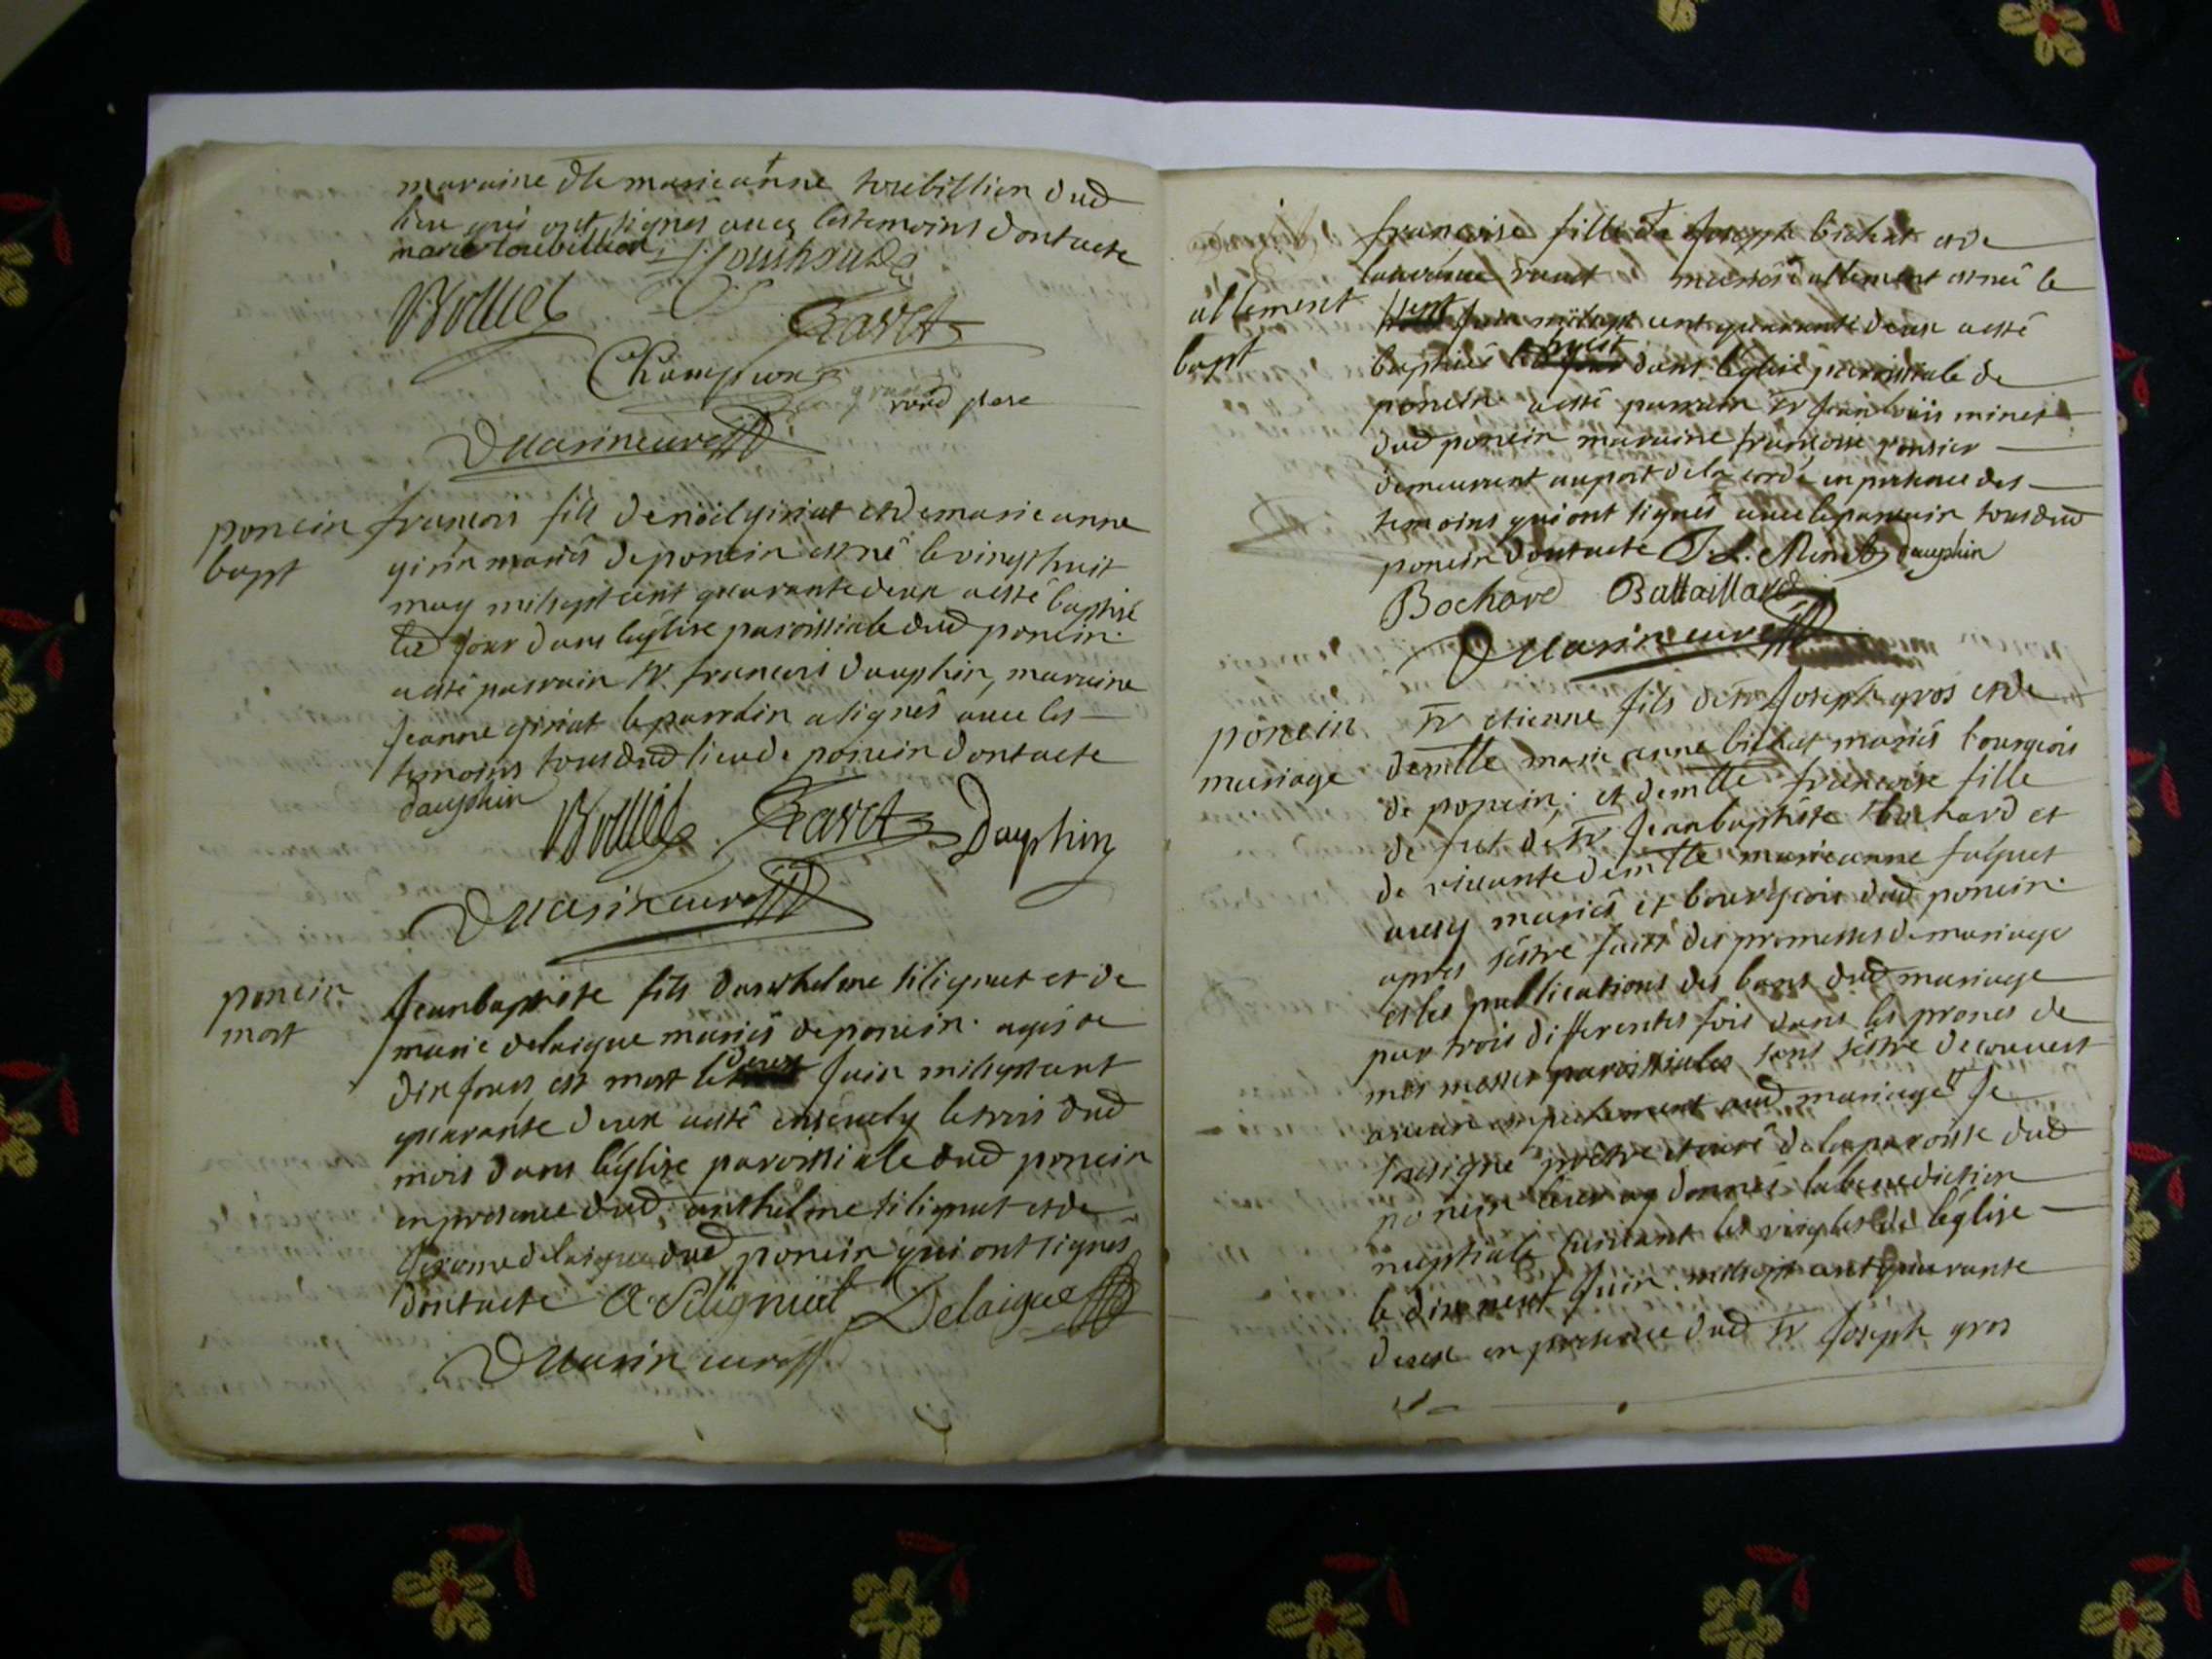 maraine dlle marieanne torebillion dud
lieu qui ont signés avec les temoins dont acte
marie torebillion
Bollliet
Ravet
Champion
rand pere
Duasin curé
poncin françois fils de noël giriat et de marie anne
bapt girin mariés de poncin est né le vingt huit
may mil sept cent quarante deux a esté baptisé
led jour dans l'eglise paroissiale dud poncin.
a esté parrain sr françois dauphin, maraine
Jeanne giriat le parrain a signés avec les
temoins tous dud lieu de poncin dont acte
dauphin
Bollliet Ravet Dauphin
Duasin curé
poncin Jean baptiste fils d'anthelme silignat et de
mort marie delaigue mariés de poncin. agés de
dix jours, est mort le deux Juin mil sept cent
quarante deux a esté ensevely le trois dud
mois dans l'église paroissiale dud poncin
en presence dud. anthelme silignat et de
Jerome delaigue dud poncin qui ont signés
dont acte A Silligniat Delaigue
Duasin curé
françoise fille de Joseph bichat et de
ravet mariés d'allement est née le
allement sept Juin mil sept cent quarante deux a esté
bapt baptisée le huit dans l'eglise paroissiale de
poncin a esté parrain sr Jean louis minet
dud poncin maraine françoise
demeurant au port de la corde en presence des
temoins qui ont signés avec le parrain tous dud
poncin dont acte J. L. Minet dauphin
Bochard Battaillard
Duasin curé
poncin sr etienne fils de sr Joseph gros et de
mariage demlle marie anne bichat mariés bourgeois
de poncin; et demlle françoise fille
de fut de sr Jean baptiste bochard et
de vivante demlle marie anne falquet
aussy mariés et bourgeois dud poncin.
apres s'éstre faits des promesses de mariage
et les publications des bans dud mariage
par trois differentes fois dans les prones de
mes messes paroissiales sans s'éstre decouvert
aucun empechement aud mariage Je
soussigné prêtre et curé de la paroisse dud
poncin leur ay donnés la benediction
nuptiale suivant les reigles de l'église
le dix neuf Juin mil sept cent quarante
deux en presence dud sr Joseph gros